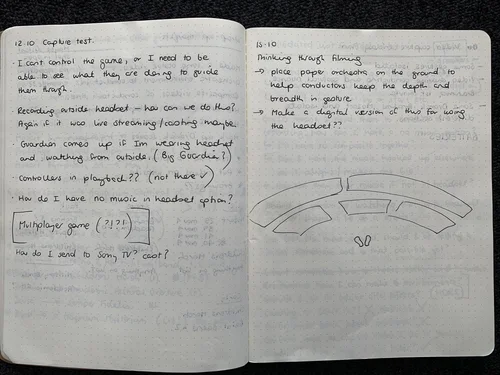 12.10 Capture test.
· I cant control the game, or I need to be
able to see what they are doing to guide
them through.
· Recording outside headset - how can we do this?
Again if it was live streaming/casting maybe.
· Guardian comes up if Im wearing headset
and watching from outside. (Big Guardian?)
· Controllers in playback?? (not there ✓)
· How do I have no music in headset option?
Multiplayer game (?!?!)
How do I send to Sony TV? cast?
15.10
Thinking through filming
→ place paper orchestra on the ground to
help conductors keep the depth and
breadth in gesture
→ Make a digital version of this for using
the headset??